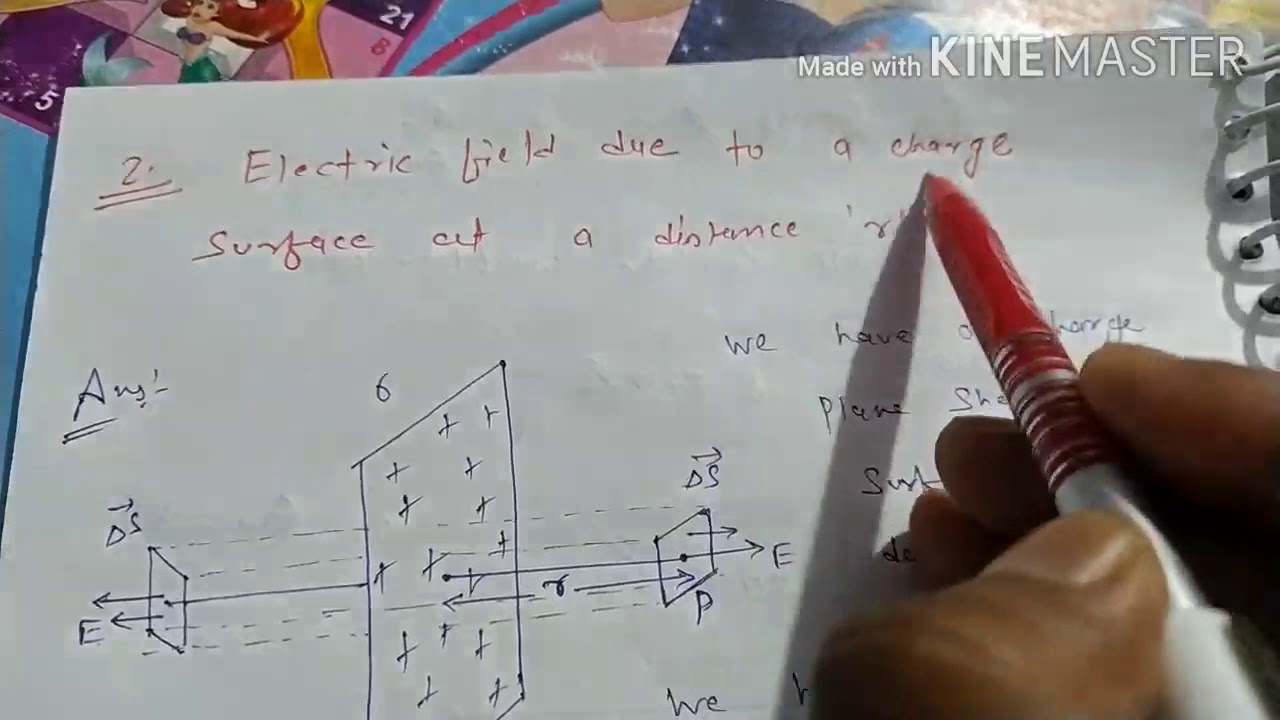 Made with KINEMASTER
21
8
5
2. Electric field due to a charge
Surface at a distance 'r'
Ans:-
6
we have
charge
Plane
ΔS
ΔS
E
E
r
P
we